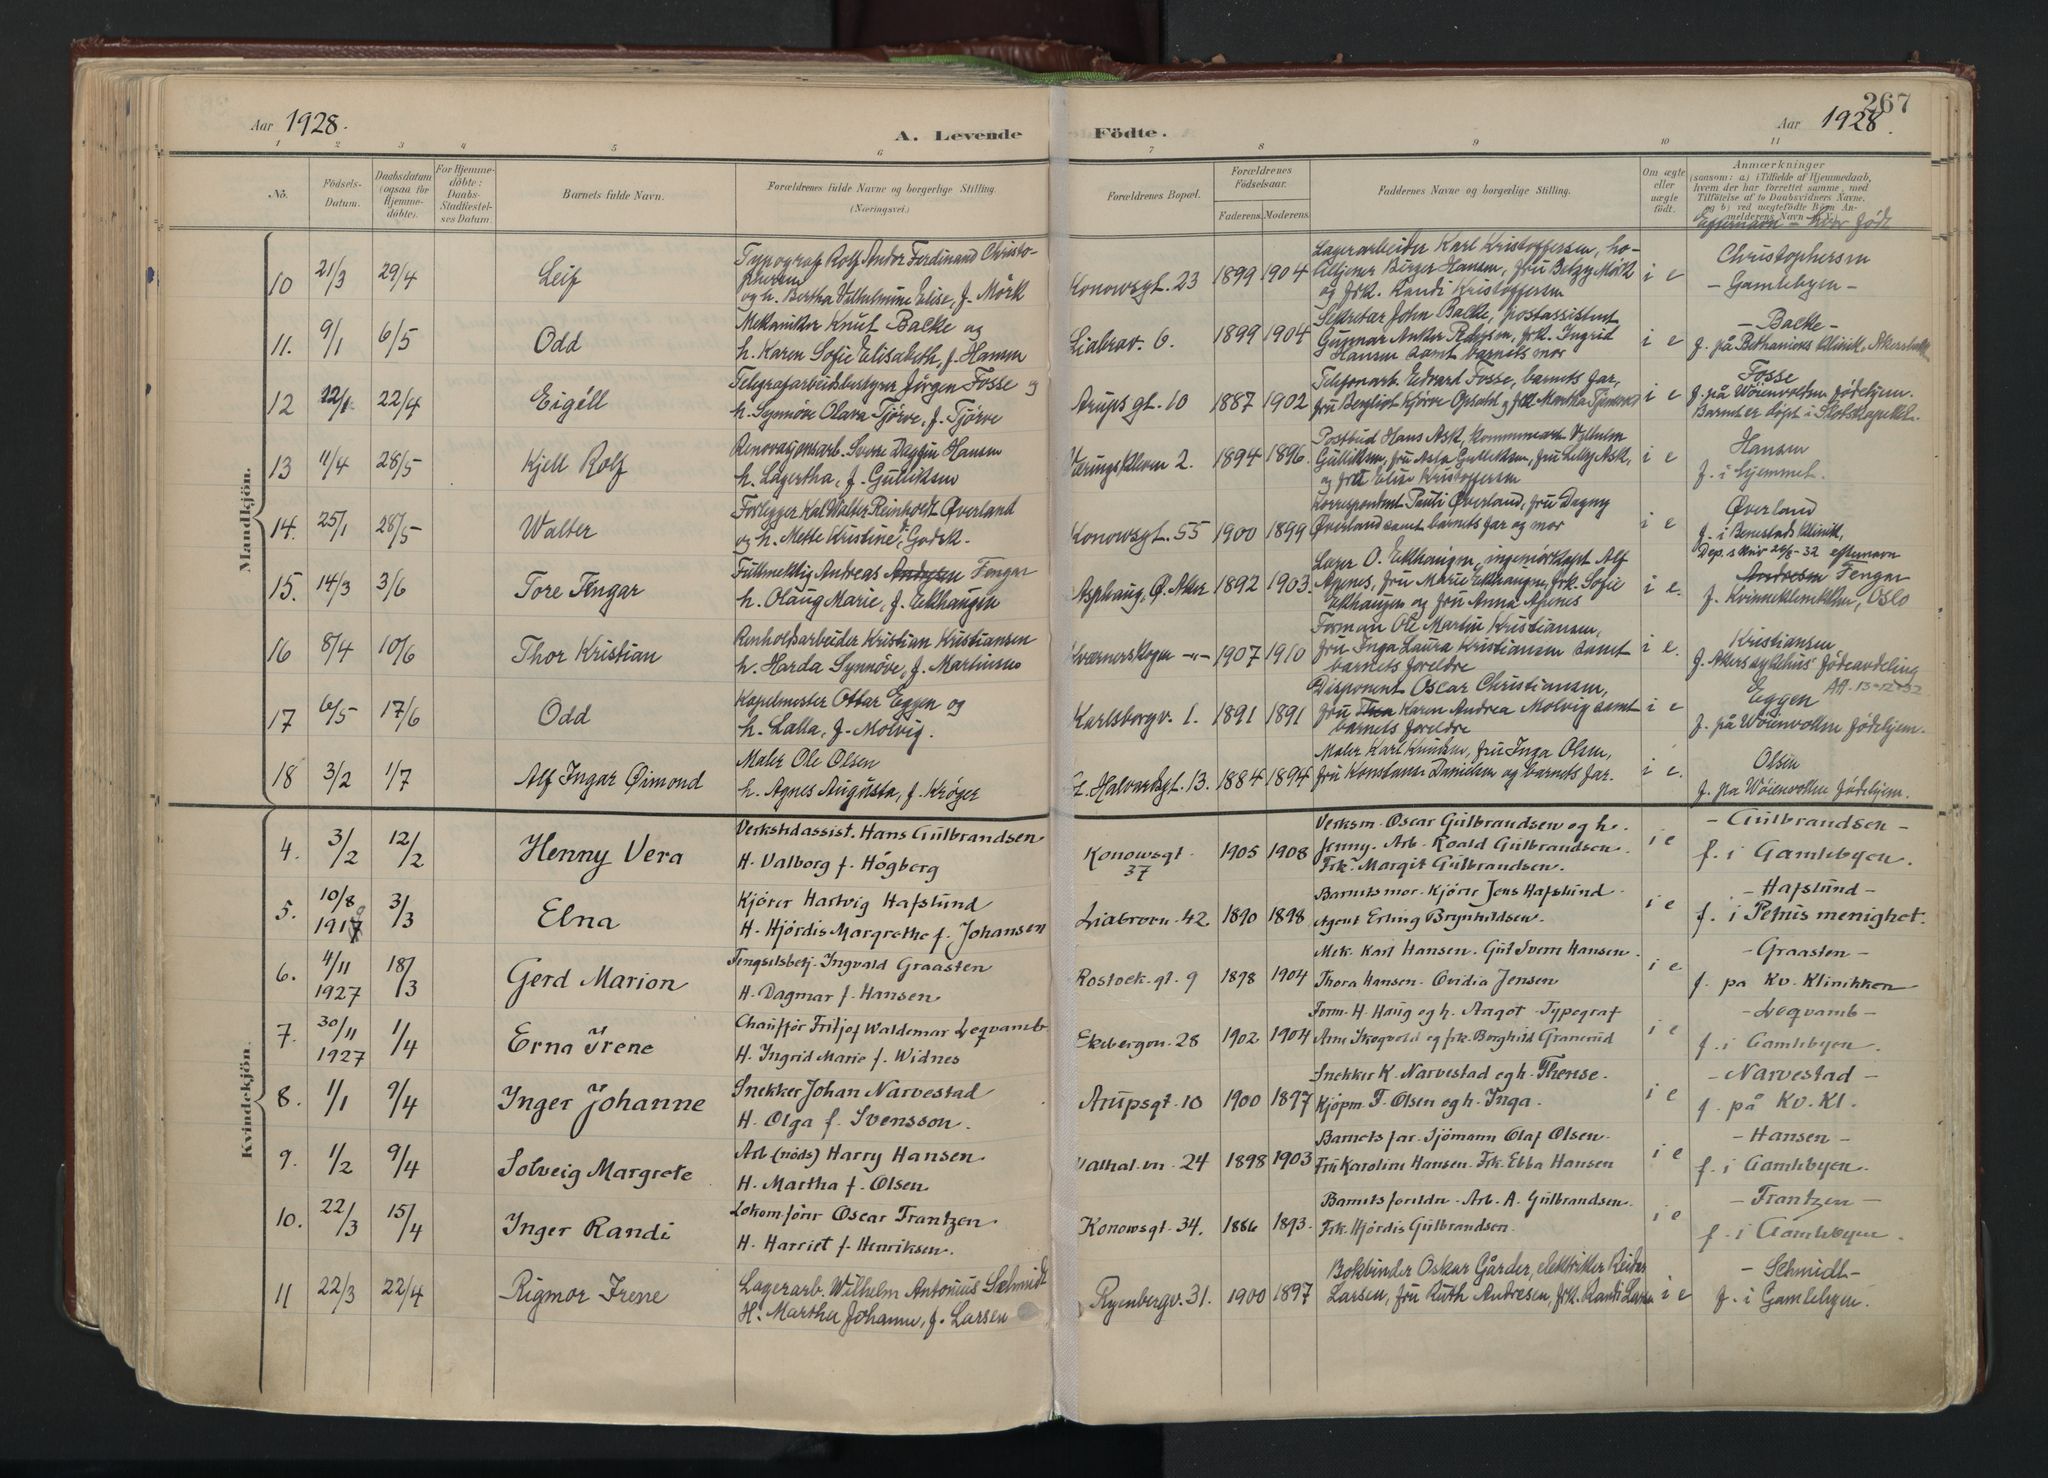 267
Aar 1928.
A. Levende Födte.
Aar 1928.
1 2 3 4 5 6 7 8 9 10 11
No.
Födsels-Datum.
Daabsdatum (ogsaa for Hjemme-döbte).
For Hjemme-döbte: Daabs-Stadfæstel-ses Datum.
Barnets fulde Navn.
Forældrenes fulde Navne og borgerlige Stilling.
(Næringsvei.)
Forældrenes Bopæl.
Forældrenes Födselsaar.
Faderens. Moderens.
Faddernes Navne og borgerlige Stilling.
Om ægte eller uægte födt.
Anmærkninger
(saasom: a) i Tilfælde af Hjemmedaab,
hvem der har forrettet samme, med
Tilföielse af to Daabsvidners Navne,
og b) ved uægtefödte Börn An-
melderens Navn
Efternavn – hvor født
Mandkjön.
10 21/3 29/4 Leif
Typograf Rolf Andor Ferdinand Christo-
phersen
og h. Bertha Vilhelmine Elise, f. Mörk
Konowsgt. 23 1899 1904
Lagerarbeider Karl Kristoffersen, ho-
Birger Hansen, fru Betzy Mörk
og frk. Randi Kristoffersen
i e
Christophersen
– Gamlebyen –
11. 9/1 6/5 Odd
Mekaniker Knut Backe og
h. Karen Sofie Elisabeth, f. Hansen
Liabrov. 6. 1899 1904
Sekretær John Backe, postassistent
Gunnar Anker frk. Ingrid
Hansen samt barnets mor
i e
– Backe –
f. på Bethaniens Klinik,
12 12/1 22/4 Eigill
Telegrafarbeidsbestyrer Jörgen Fosse og
h. Synnöve Olava Tjörve, f. Tjörve
Arups gt. 10 1887 1902
Telefonarb. Edvart Fosse, barnets far,
fru Bergliot Opsahl og frk. Martha
i e
Fosse
f. på Wöienvolden födehjem.
Barnet er döpt i Slotskapellet.
13 11/4 28/5 Kjell Rolf
Renovasjonsarb. Sverre Dagfin Hansen
h. Lagertha, f. Gulliksen
Væringskleven 2. 1894 1896.
Postbud Hans Ask, kommunearb. Vilhelm
Gulliksen, fru Asta Gulliksen, fru Lilly Ask,
og frk. Elise Kristoffersen
i e
Hansen
f. i hjemmet.
14. 25/1 28/5 Walter
Forlegger Kal Walter Reinholdt Øverland
og h. Mette Kristine, f. Godsk.
Konowsgt. 55 1900 1899
Korrespondent Pauli Øverland, fru Dagny
Øverland samt barnets far og mor
i e
Øverland
f. i Benestads Klinik,
Dep. skriv 24/6-32 efternavn
15. 14/3 3/6 Tore Fengar
Fullmektig Andreas Andresen Fengar
h. Olaug Marie, f. Eckhaugen
Asphaug, Ø. Aker 1892 1903.
Lager O. Eckhaugen, ingeniörkapt Alf
Apenes, fru Marie Eckhaugen, frk. Sofie
Eckhaugen og fru Anna Apenes
i e.
Andresen Fengar
f. Kvinneklinikken, OSLO
16 8/4 10/6 Thor Kristian
Renholdsarbeider Kristian Kristiansen
h. Harda Synnöve, f. Martinsen
Kværnerskogen –"– 1907 1910
Forman Ole Martin Kristiansen,
fru Inga Laura Kristiansen samt
barnets foreldre
i e.
Kristiansen
f. Akers sykehus' födeavdeling
17 6/5 17/6 Odd
Kapelmester Ottar Eggen og
h. Lalla, f. Molvig.
Karlsborgv. 1. 1891 1891
Disponent Oscar Christiansen,
fru Karen Andrea Molvig samt
barnets foreldre
i e
Eggen Att. 13-12-32
f. på Wöienvollen födehjem.
18 3/2 1/7 Alf Ingar Øimond
Maler Ole Olsen
h. Agnes Augusta, f. Kröger
St. Halvardsgt. 13. 1884 1894
Maler Karl Knudsen, fru Inga Olsen,
fru Konstanse Danielsen og barnets far.
i e.
Olsen
f. på Wöienvollen födehjem.
Kvindekjön.
4. 3/2 12/2 Henny Vera
Verkstedassist. Hans Gulbrandsen
H. Valborg f. Högberg
Konowsgt. 37 1905 1908
Verksm. Oscar Gulbrandsen og h.
Jenny. Arb. Roald Gulbrandsen.
Frk. Margit Gulbrandsen.
i e
– Gulbrandsen –
f. i Gamlebyen.
5. 10/8 1917 3/3 Elna
Kjörer Hartvig Hafslund
H. Hjördis Margrethe f. Johansen
Liabroven 42 1890 1898
Barnets mor. Kjörer Jens Hafslund.
Agent Erling Brynhildsen.
i e
– Hafslund –
f. i Petrus menighet.
6. 4/11 1927 18/3 Gerd Marion
Fengselsbetj. Ingvald Graasten
H. Dagmar f. Hansen
Rostock.gt. 9 1898 1904
Mek. Karl Hansen. Gut Sverre Hansen.
Thora Hansen. Ovidia Jensen
i e
– Graasten –
f. på Kv. Klinikken
7. 30/11 1927 1/4 Erna Irene
Chauffør Fritjof Waldemar Leqvamb.
H. Ingrid Marie f. Widnes
Ekebergvn. 28 1902 1904
Form. H. Haug og h. Aagot. Typograf
Arne Skogvold og frk. Borghild Granerud
i e
– Leqvamb –
f. i Gamlebyen.
8. 1/1 9/4 Inger Johanne
Snekker Johan Narvestad
H. Olga f. Svensson.
Arupsgt. 10 1900 1897
Snekker K. Narvestad og h. Therese.
Kjöpm. F. Olsen og h. Inga.
i e
– Narvestad –
f. på Kv. Kl.
9. 1/2 9/4 Solveig Margrete
Arb (nöds) Harry Hansen.
H. Martha f. Olsen.
Valhal.vn. 24 1898 1903
Barnets far. Sjömann Olaf Olsen.
Fru Karoline Hansen. Frk. Ebba Hansen
i e
– Hansen –
f. i Gamlebyen.
10. 22/3 15/4 Inger Randi
Lokom.förer Oscar Frantzen.
H. Harriet f. Henriksen.
Konowsgt. 34. 1886 1893.
Barnets foreldre. Arb. A. Gulbrandsen.
Frk. Hjördis Gulbrandsen.
i e
– Frantzen –
f. i Gamlebyen.
11 22/3 22/4 Rigmor Irene
Lagerarb. Wilhelm Antonius Schmidt
H. Martha Johanne, f. Larsen
Ryenbergv. 31. 1900 1897
Bokbinder Oskar Gårder, elektriker Reidar
Larsen, fru Ruth Andresen, frk. Randi Larsen
i e
– Schmidt –
f. i Gamlebyen.